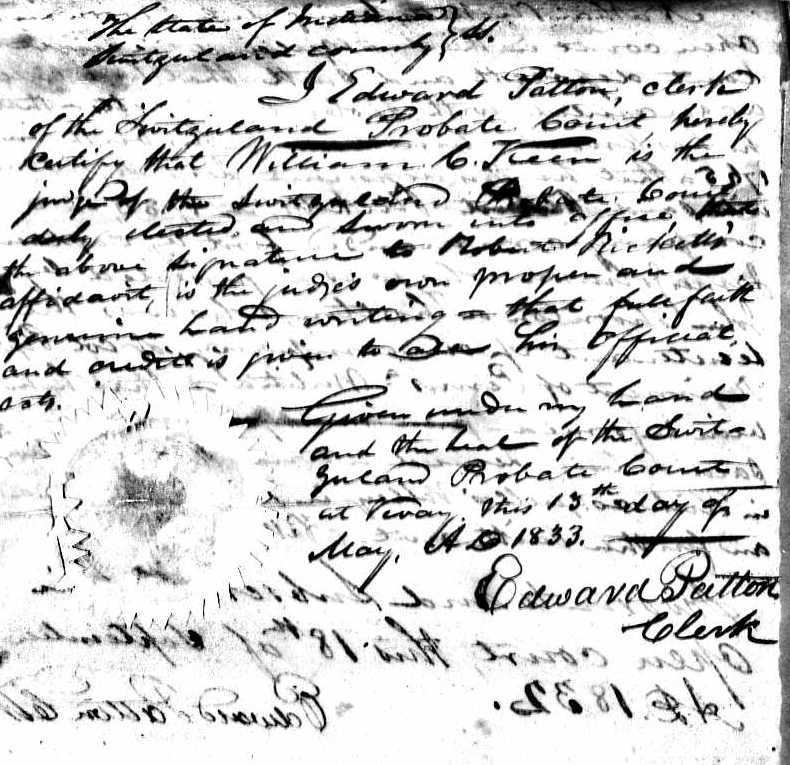 The State of Indiana } ss.
Switzerland county
I Edward Patton, clerk
of the Switzerland Probate Court, hereby
certify that William C. Keen is the
judge of the Switzerland Probate Court,
duly elected and Sworn into office, that
the above signature to Robert Ricketts'
affidavit, is the judge's own proper and
genuine hand writing = that full faith
and credit is given to his Official
acts.
Given under my hand
and the seal of the Swit=
zerland Probate Court
at Vevay this 13th day of
May, A D 1833.
Edward Patton
Clerk
open court, this 18th of
A.D. 1832.
Edward Patton